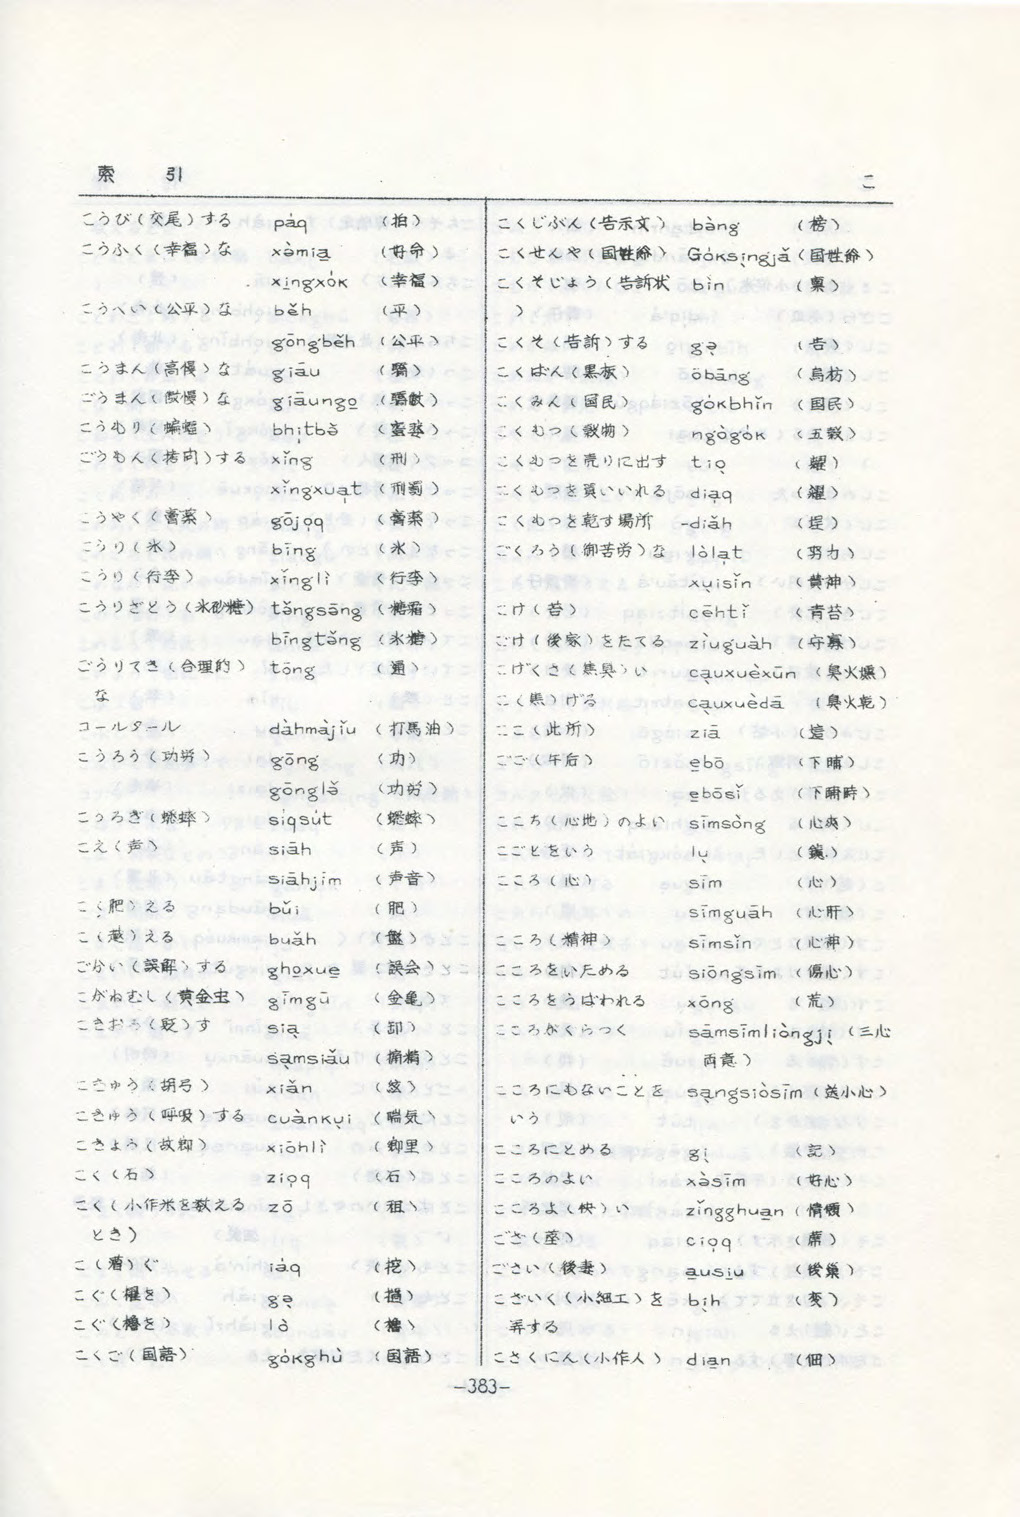 索 引
こ
こうび(交尾)する páq (拍)
こうふく(幸福)な xə̀miạ (好命)
xịngxók (幸福)
こうへい(公平)な běh (平)
gōngběh (公平)
こうまん(高慢)な giāu (驕)
ごうまん(傲慢)な giāungọ (驕傲)
こうむり(蝙蝠) bhịtbə̌ (蜜婆)
ごうもん(拷問)する xǐng (刑)
xǐngxuạt (刑罰)
こうやく(膏薬) gōjọq (膏薬)
こうり(氷) bīng (氷)
こうり(行李) xǐnglì (行李)
こうりざとう(氷砂糖) tə̌ngsə̄ng (糖霜)
bīngtə̌ng (氷糖)
ごうりてき(合理的) tōng (通)
な
コールタール dàhmàjǐu (打馬油)
こうろう(功労) gōng (功)
gōnglə̌ (功労)
こうろぎ(蟋蟀) síqsút (蟋蟀)
こえ(声) siāh (声)
siāhjīm (声音)
こ(肥)える bǔi (肥)
こ(越)える buǎh (盤)
ごかい(誤解)する ghọxuẹ (誤会)
こがねむし(黄金虫) gīmgū (金亀)
こきおろ(貶)す siạ (卸)
sạmsiǎu
こきゅう(胡弓) xiǎn (絃)
こきゅう(呼吸)する cuànkụi (喘気)
こきょう(故郷) xiōhlì (郷里)
こく(石) ziọq (石)
こく(小作米を数える zō (租)
とき)
こ(漕)ぐ iáq (挖)
こぐ(櫂を) gə̣
こぐ(櫓を) lò (櫓)
こくご(国語) gókghù (国語)
こくじぶん(告示文) bàng (榜)
こくせんや(国姓爺) Góksịngjǎ (国姓爺)
こくそじょう(告訴状 bìn (稟)
)
こくそ(告訴)する gə̣ (告)
こくばん(黒板) ōbāng (烏枋)
こくみん(国民) gókbhǐn (国民)
こくもつ(穀物) ngògók (五穀)
こくもつを売りに出す tiọ (糶)
こくもつを買いいれる diạq (糴)
こくもつを乾す場所 -diǎh (埕)
ごくろう(御苦労)な lòlạt (努力)
xụisǐn (費神)
こけ(苔) cēhtǐ (青苔)
ごけ(後家)をたてる zìuguàh (守寡)
こげくさ(焦臭)い cạuxuèxūn (臭火燻)
こ(焦)げる cạuxuèdā (臭火乾)
ここ(此所) ziā (遮)
ごご(午后) ẹbō (下晡)
ẹbōsǐ (下晡時)
ここち(心地)のよい sīmsòng (心爽)
こごとをいう lụ (鑢)
こころ(心) sīm (心)
sīmguāh (心肝)
こころ(精神) sīmsǐn (心神)
こころをいためる siōngsīm (傷心)
こころをうばわれる xōng (荒)
こころがぐらつく sāmsīmliòngjị (三心
両意)
こころにもないことを sạngsiòsīm (送小心)
いう
こころにとめる gị (記)
こころのよい xə̀sīm (好心)
こころよ(快)い zǐngghuạn (情願)
ござ(座) ciọq (蓆)
ごさい(後妻) ạusịu (後巣)
こざいく((小細工)を bịh (変)
弄する
こさくにん(小作人) diạn (佃)
-383-